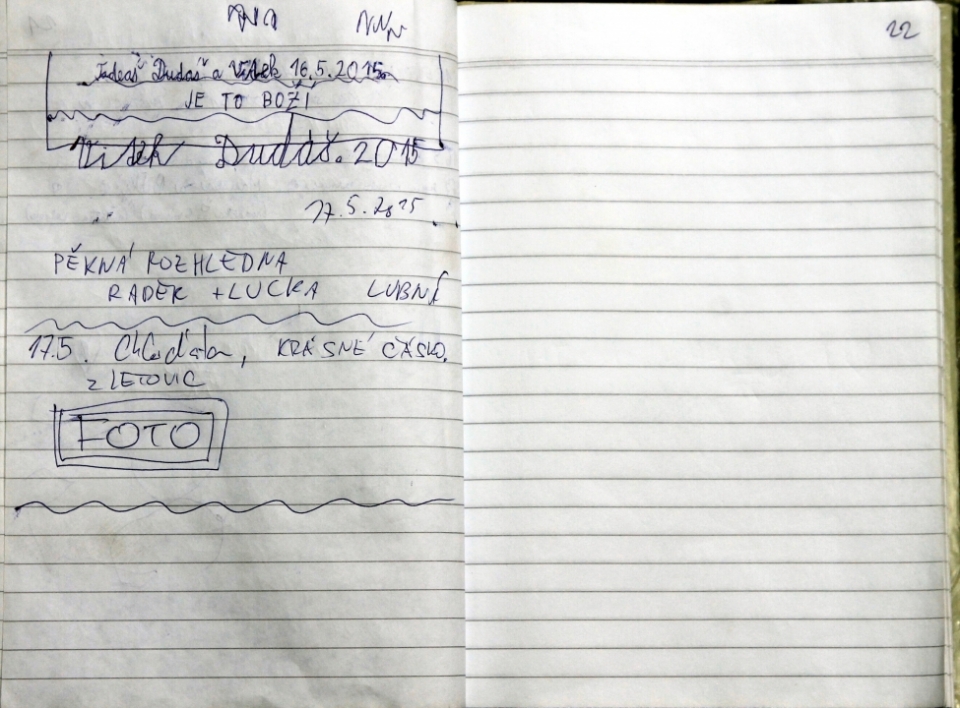 22
Tadeaš Dudáš a Vítek 16.5.2015
JE TO BOŽÍ
Vítek Dudáš. 2015
17.5.2015
PĚKNÁ ROZHLEDNA
RADEK + LUCKA LUBNÁ
17.5. KRÁSNÉ
z LETOVIC
FOTO